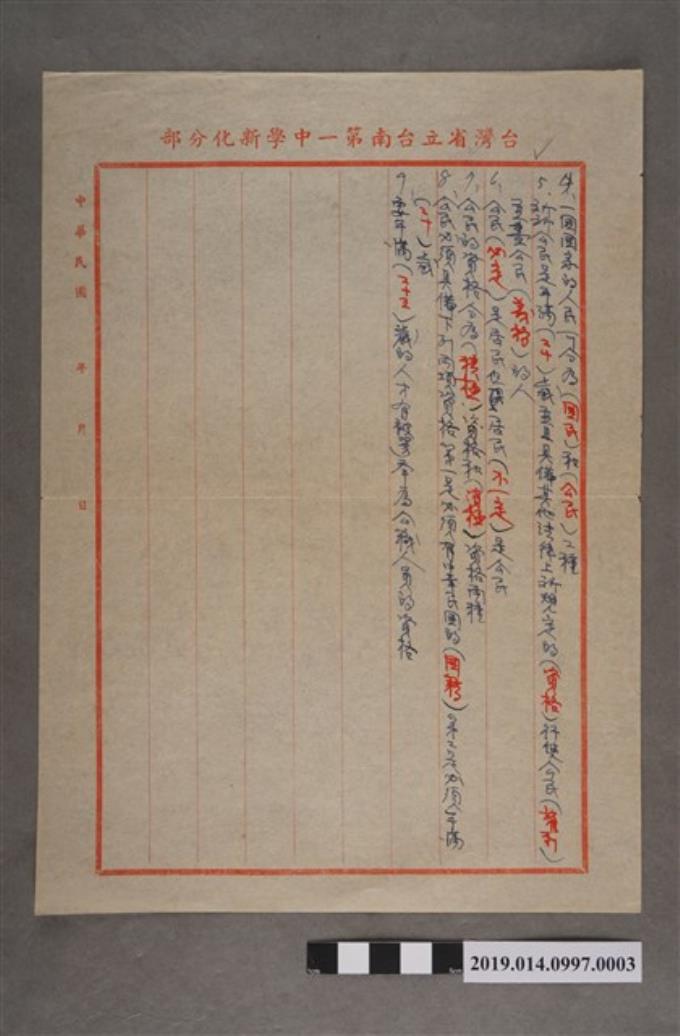 台灣省立台南第一中學新化分部
4、一個國家的人民可分為(國民)和(公民)二種
5、所謂公民是年滿(二十)歲並且具備其他法律上所規定的(資格)行使公民(權利)
並盡公民(義務)的人
6、公民(必定)是居民但居民(不一定)是公民
7、公民的資格分為(積極)資格和(消極)資格兩種
8、公民必須具備下列兩項資格第一是必須有中華民國的(國籍)。第二是必須年滿
(二十)歲
9、要年滿(二十三)歲的人才有被選舉為公職人員的資格
中華民國 年 月 日
2019.014.0997.0003